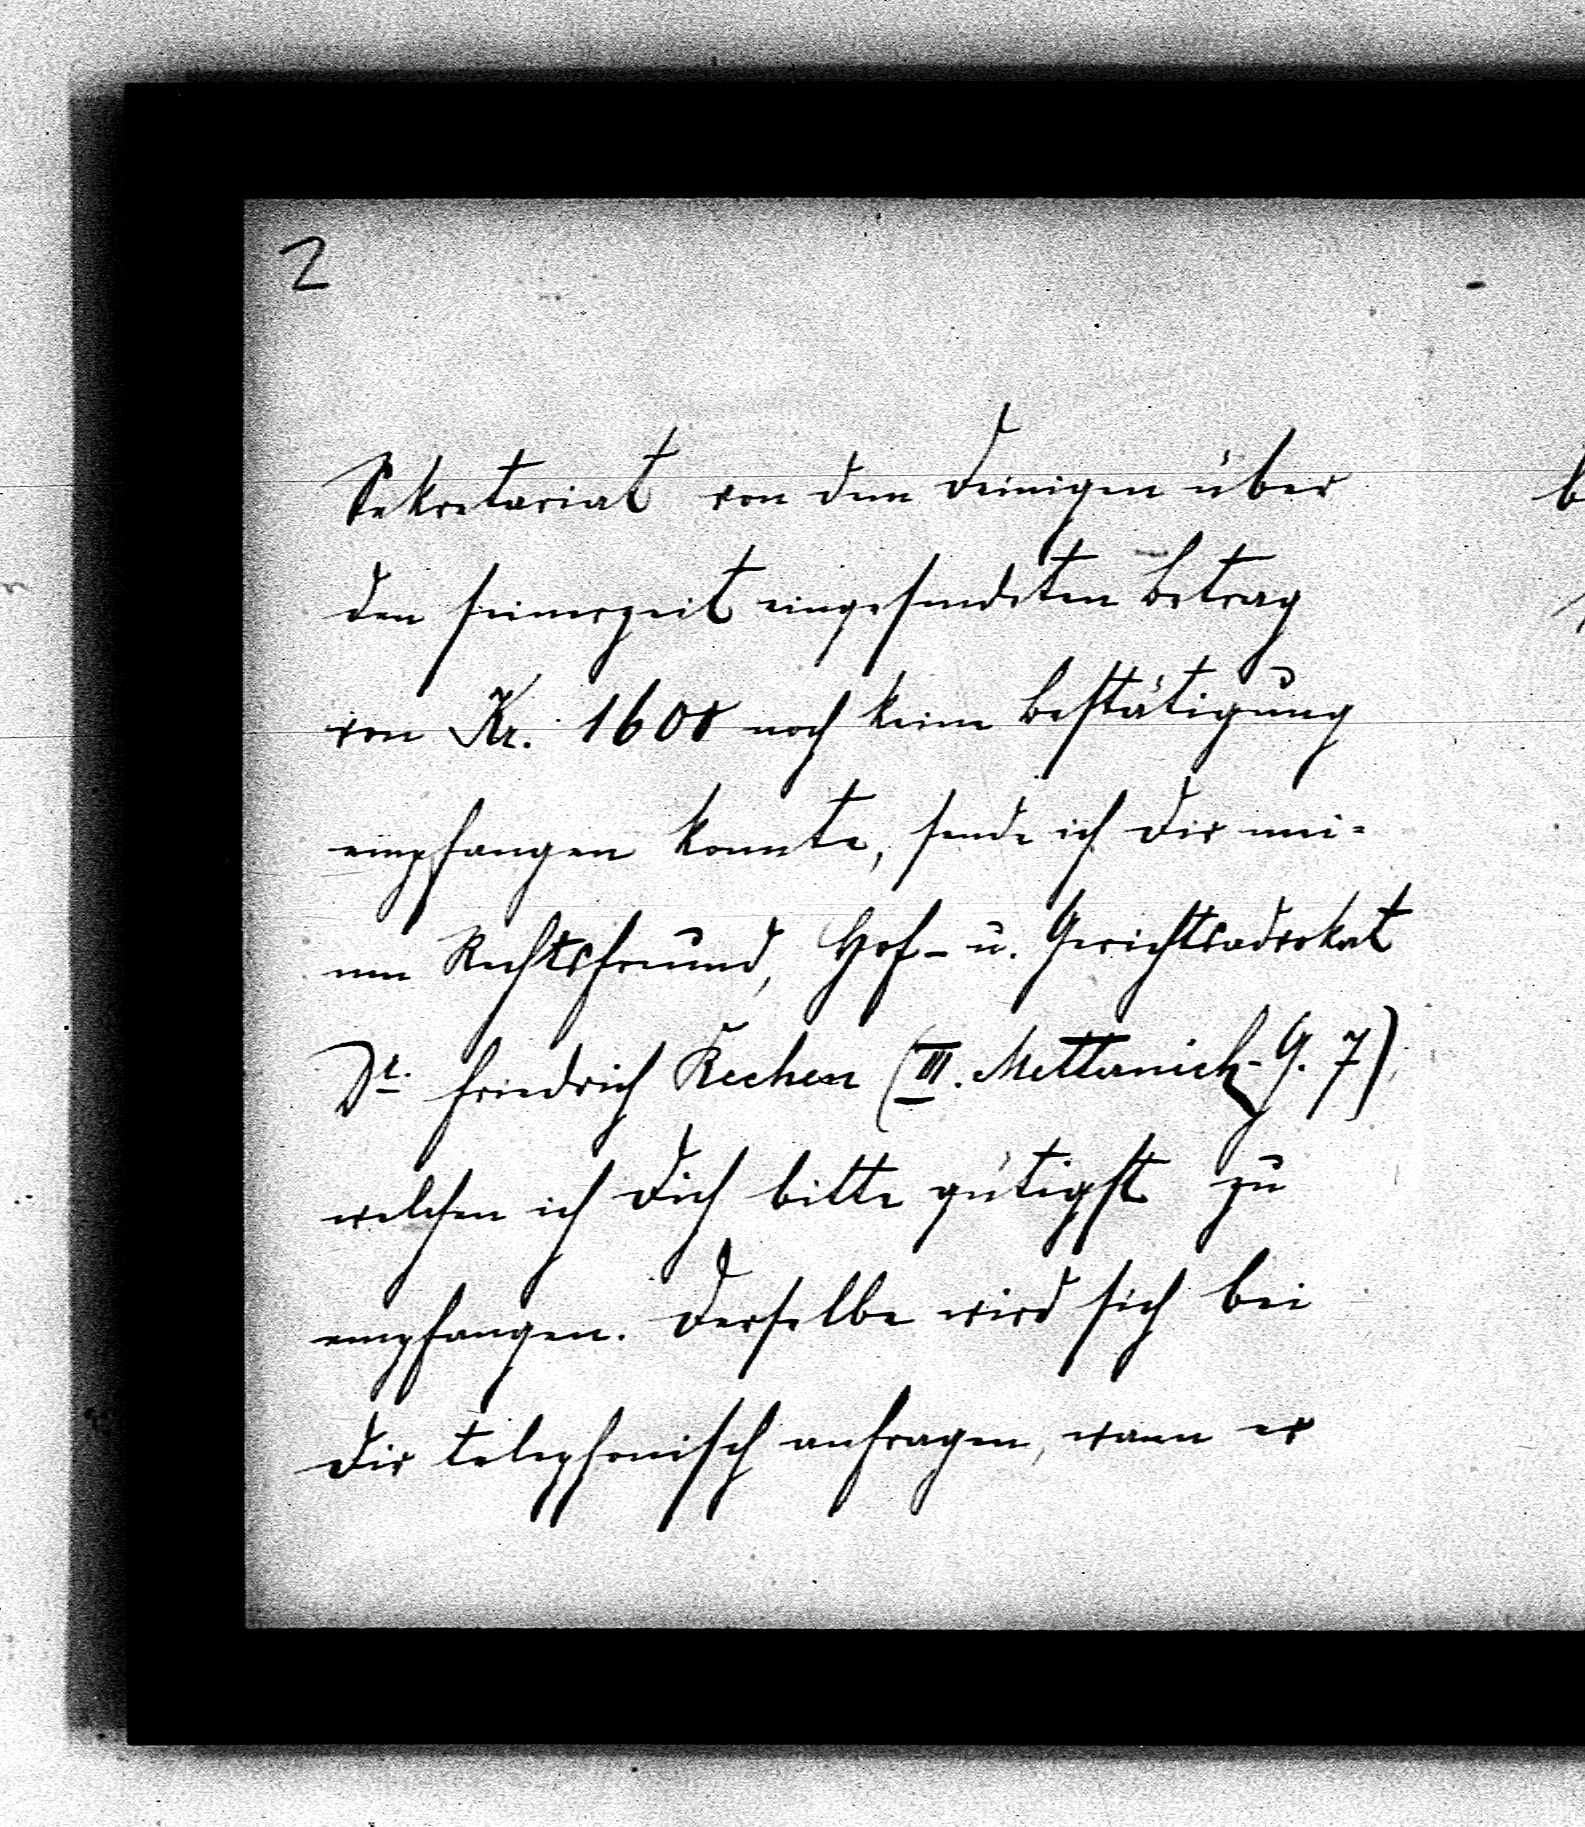 2
Sekretariat von dem Deinigen über
den seinerzeit eingesendeten Betrag
von Kr. 1600 noch keine Bestätigung
empfangen konnte, sende ich Dir mei-
nen Rechtsfreund, Hof- u. Gerichtsadvokat
Dr. Friedrich (III. Metternich-G. 7)
welchen ich Dich bitte gütigst zu
empfangen. Derselbe wird sich bei
Dir telephonisch anfragen, wann er